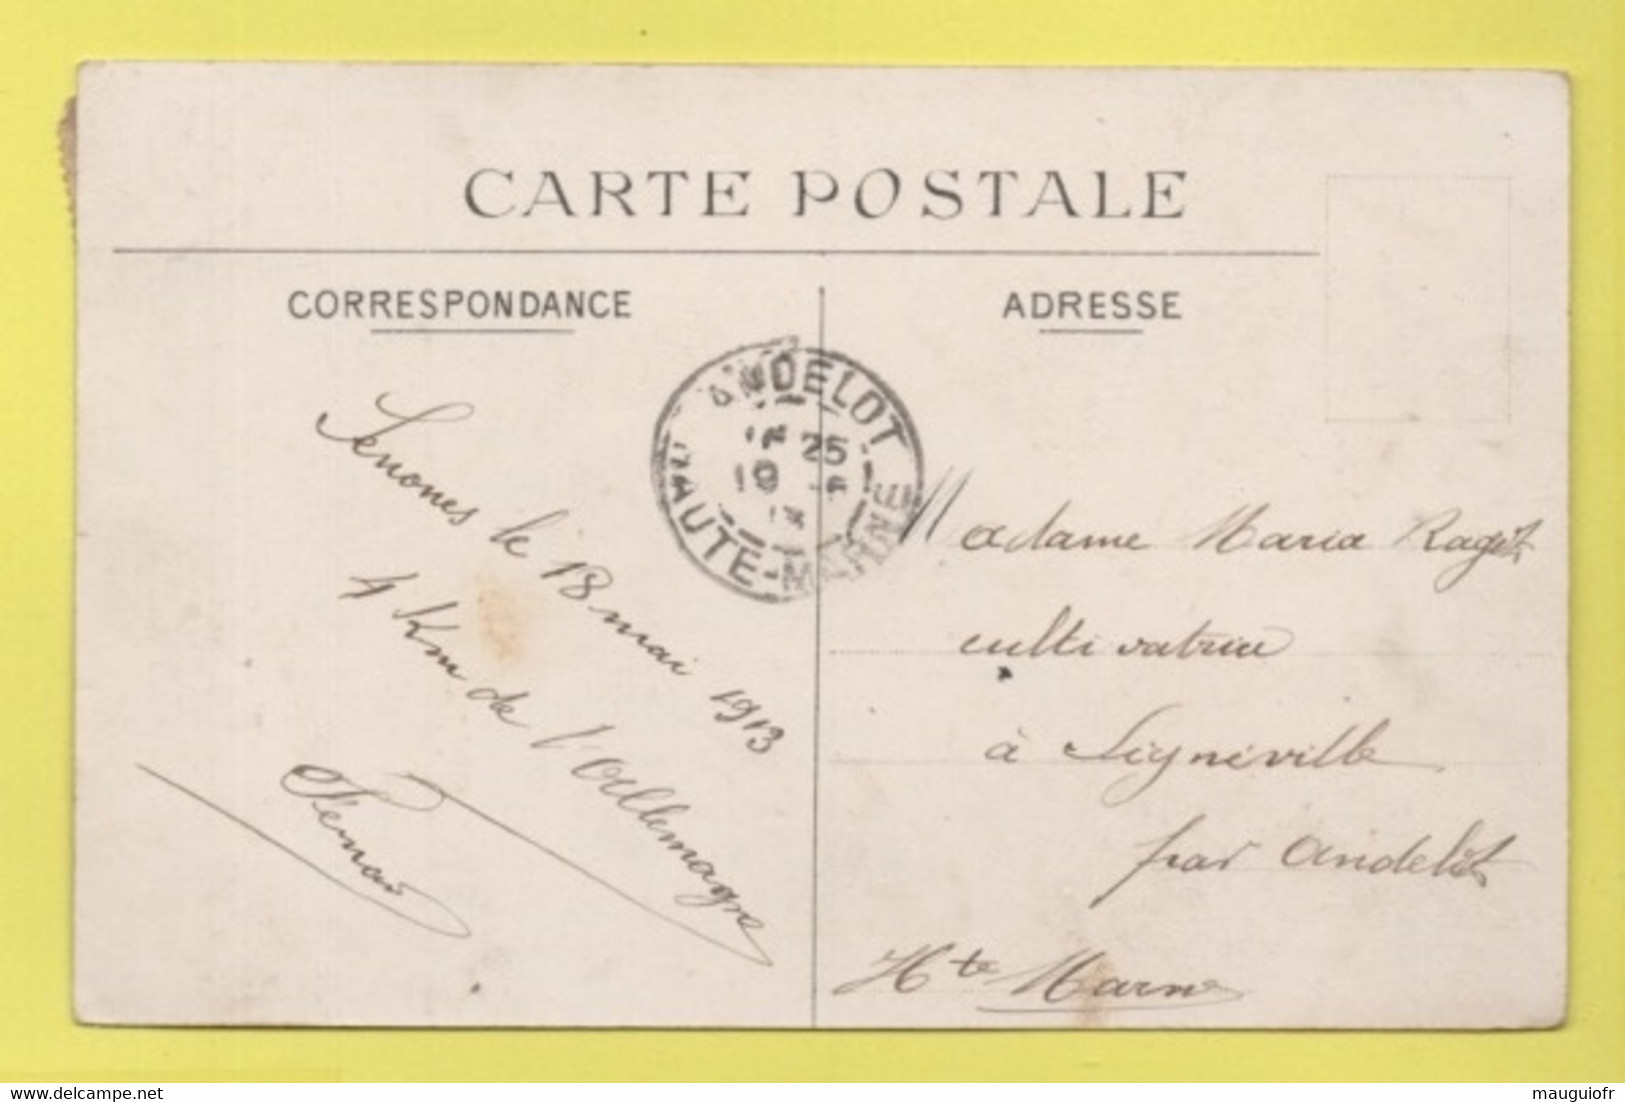 CARTE POSTALE
CORRESPONDANCE
ADRESSE
ANDELOT
25
19
HAUTE-MARNE
Senones le 18 mai 1913
4 Km de l'Allemagne
Madame Maria Ragot
cultivatrice
à Signéville
par Andelot
Hte Marne
mauguiofr